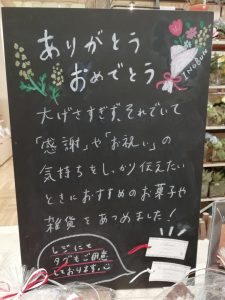 ありがとう
おめでとう
INOBUN
大げさすぎず、それでいて
「感謝」や「お祝い」の
気持ちをしっかり伝えたい
ときにおすすめのお菓子や
雑貨をあつめました!
レジにて
タグもご用意
しております。